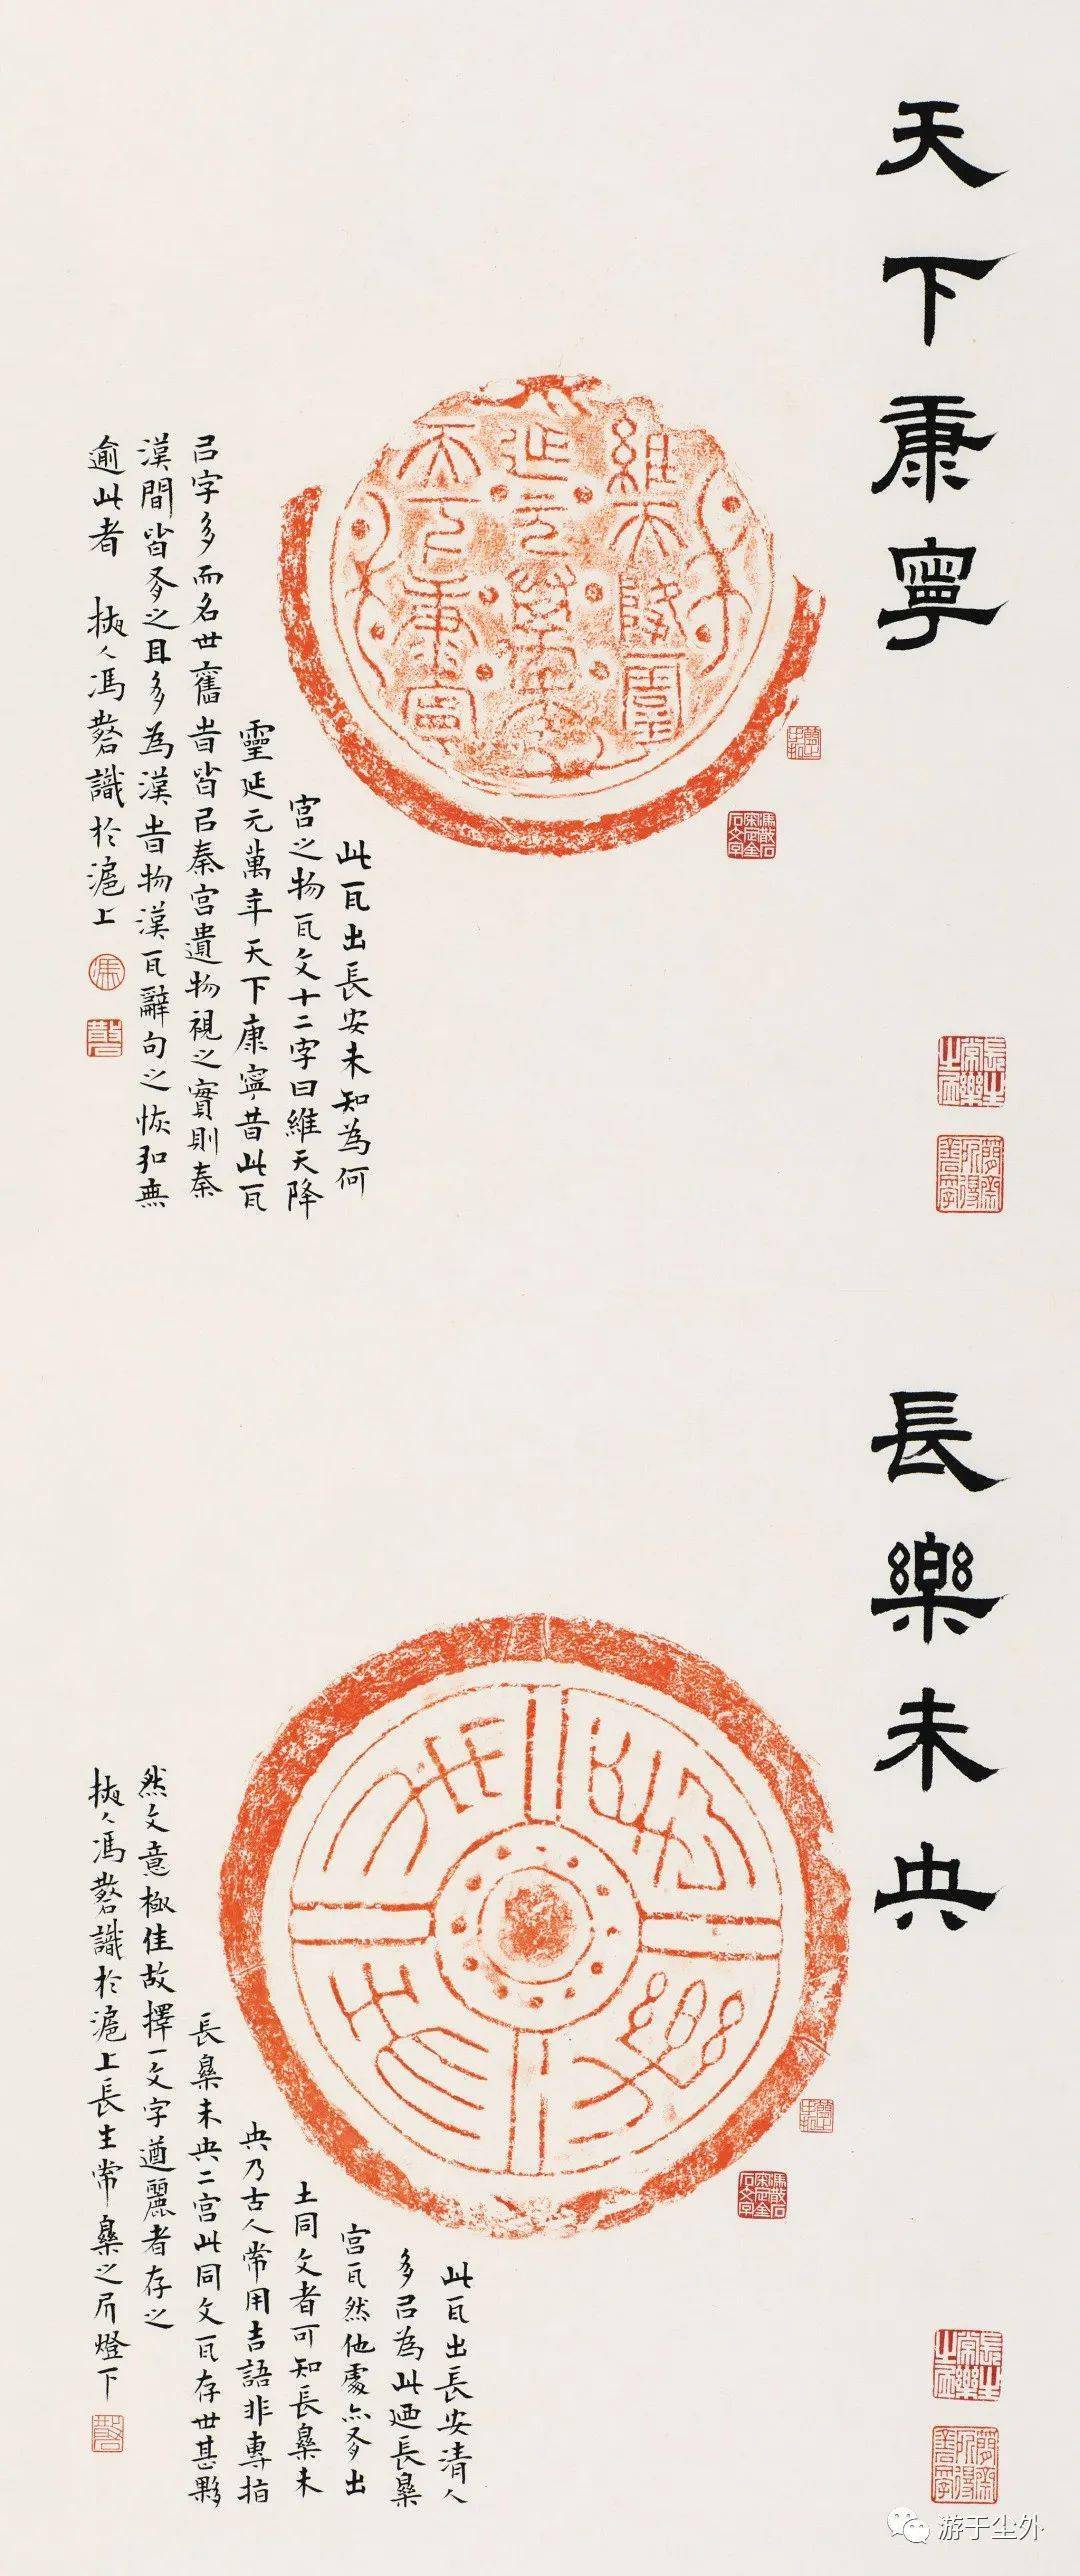 天下康寧
維天降靈
延元萬年
天下康寧
此瓦出長安未知為何
宮之物瓦文十二字曰維天降
靈延元萬年天下康寧昔此瓦
㠯字多而名世舊昔皆㠯秦宮遺物視之實則秦
漢間皆有之且多為漢昔物漢瓦辭句之恢弘無
逾此者 掖人馮磬識於滬上
長樂未央
長樂未央
此瓦出長安清人
多㠯為此迺長樂
宮瓦然他處亦有出
土同文者可知長樂未
央乃古人常用吉語非專指
長樂未央二宮此同文瓦存世甚夥
然文意極佳故擇一文字遒麗者存之
掖人馮磬識於滬上長生常樂之居燈下
游于尘外